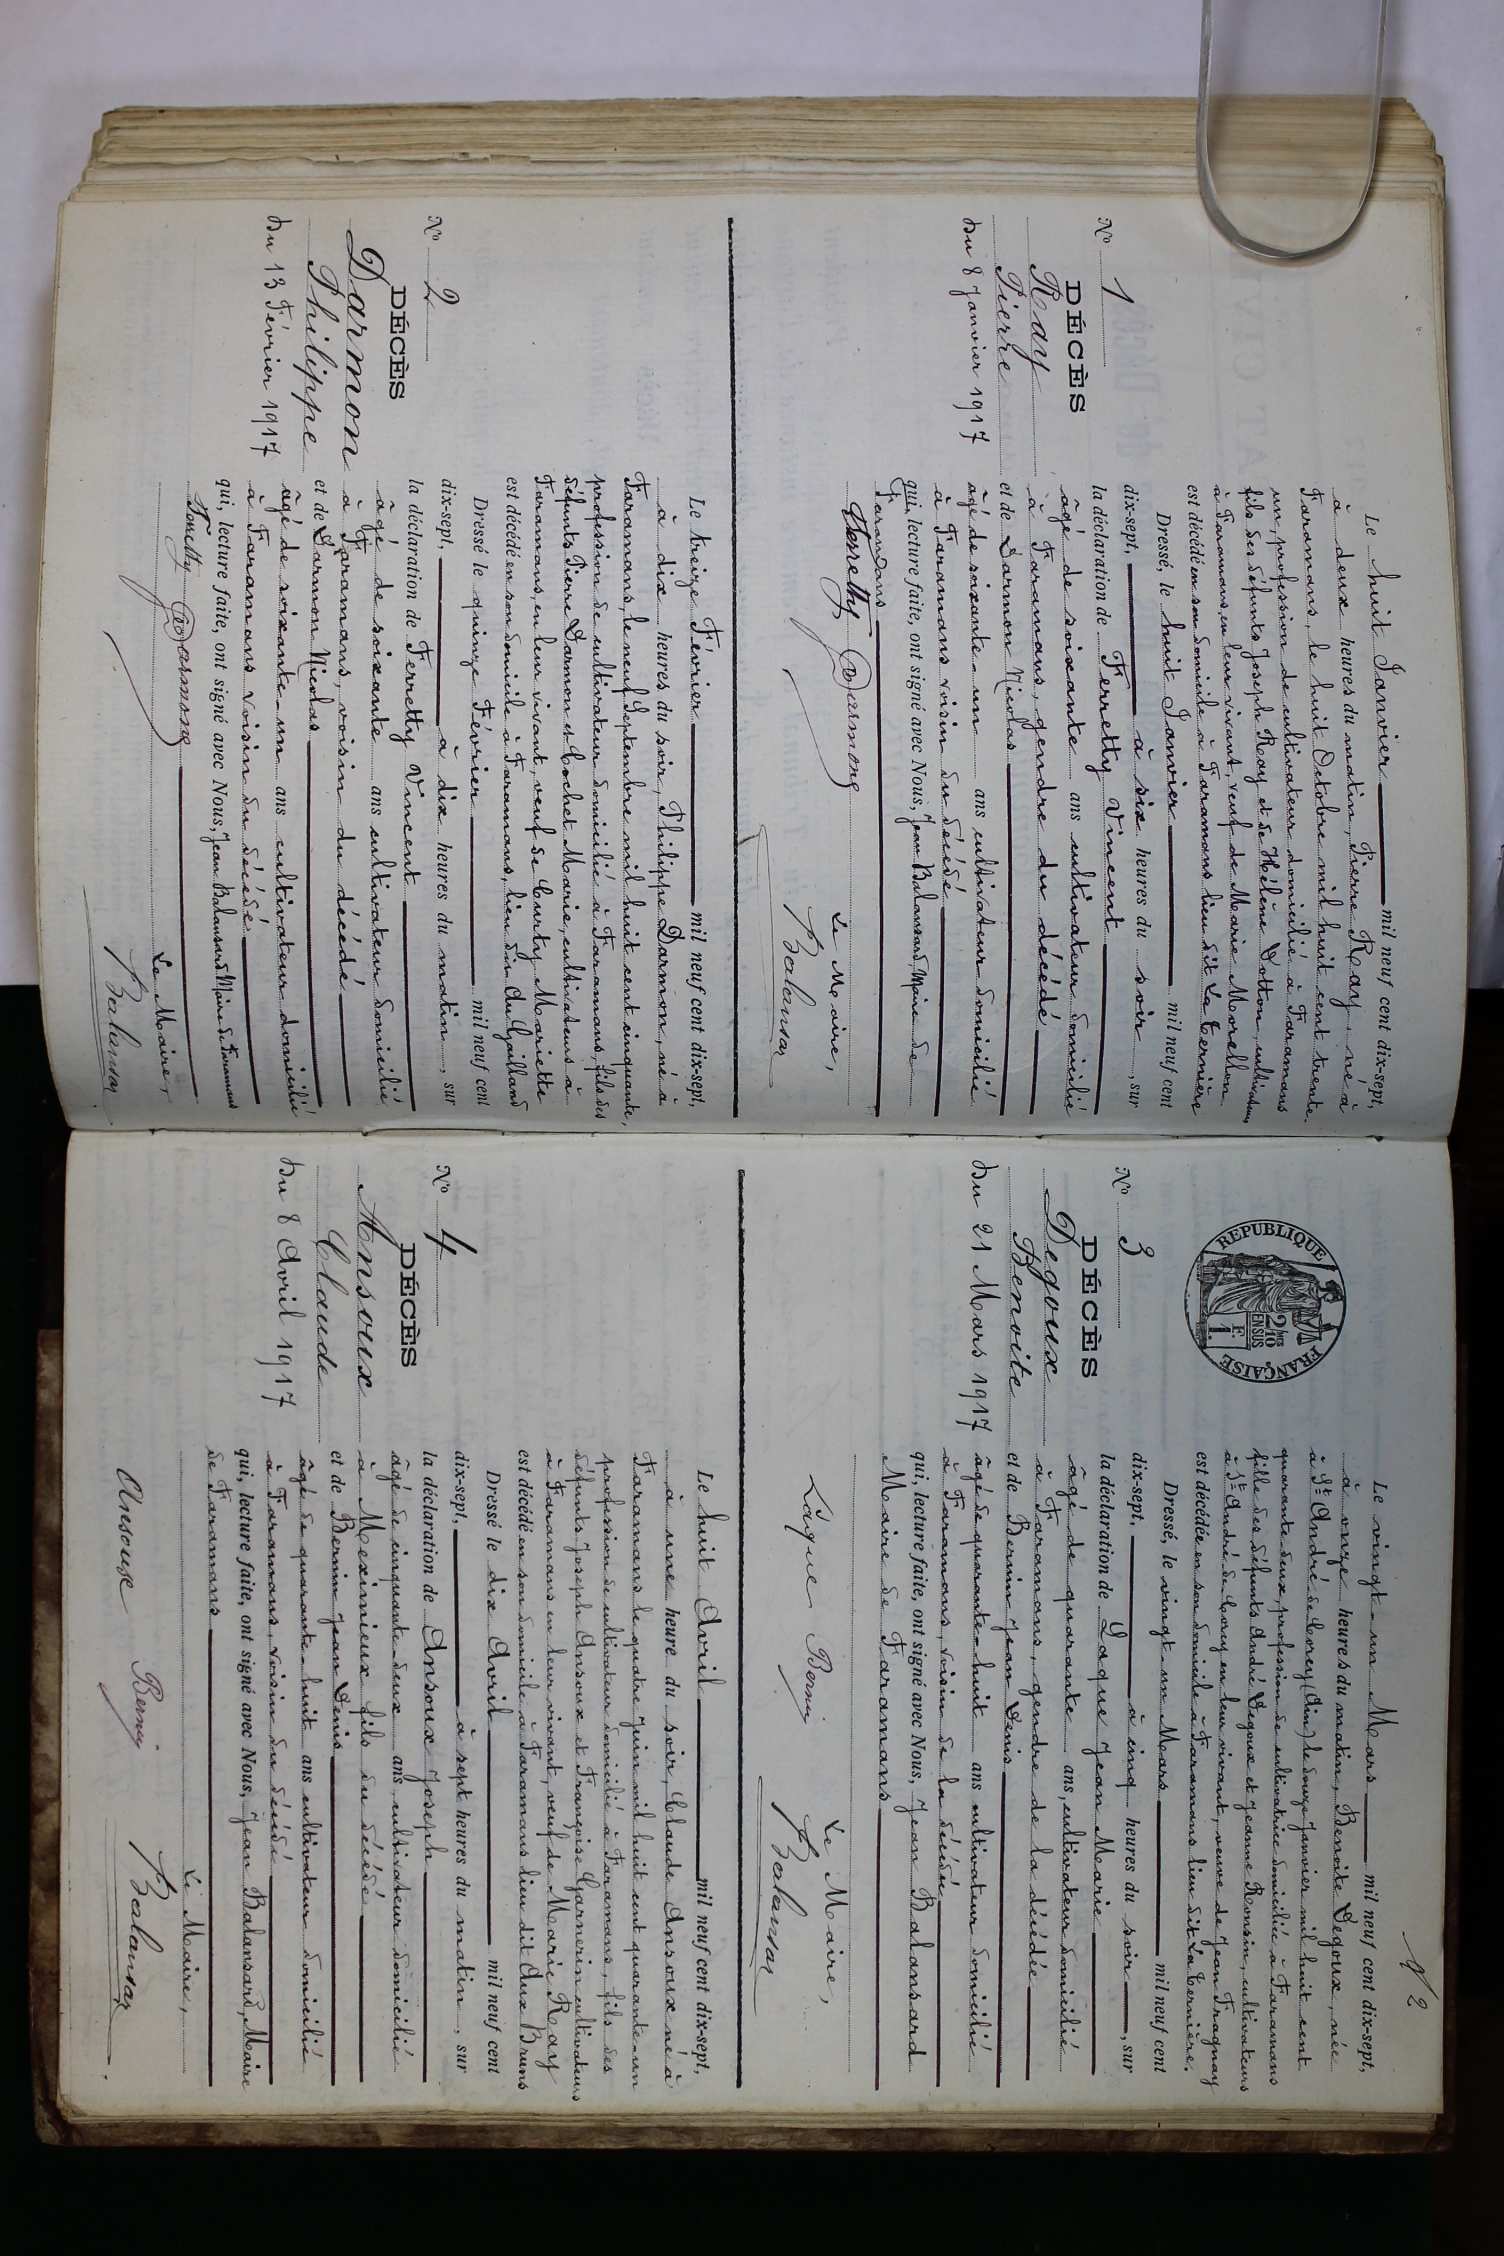 Nº 1
DÉCÈS
Ray
Pierre
Du 8 Janvier 1917
Le huit Janvier mil neuf cent dix-sept,
à deux heures du matin, Pierre Ray, né à
Faramans, le huit Octobre mil huit cent trente
un, profession de cultivateur domicilié à Faramans
fils des défunts Joseph Ray et de Hélène Dotton, cultivateurs
à Faramans, en leur vivant, veuf de Marie Morellon
est décédé en son domicile à Faramans lieu dit La Ternière
Dressé, le huit Janvier mil neuf cent
dix-sept, à six heures du soir, sur
la déclaration de Ferretty Vincent
âgé de soixante ans cultivateur domicilié
à Faramans, gendre du décédé
et de Darmon Nicolas
âgé de soixante-un ans cultivateur domicilié
à Faramans voisin du décédé
qui, lecture faite, ont signé avec Nous, Jean Balansard, Maire de
Faramans
Ferretty Darmong
Le Maire,
Balansar
Nº 2
DÉCÈS
Darmon
Philippe
Du 13 Février 1917
Le treize Février mil neuf cent dix-sept,
à dix heures du soir, Philippe Darmon, né à
Faramans, le neuf Septembre mil huit cent cinquante,
profession de cultivateur domicilié à Faramans, fils des
défunts Pierre Darmon et Cochet Marie, cultivateurs à
Faramans, en leur vivant, veuf de Curty Mariette
est décédé en son domicile à Faramans, lieu dit Au Gailland
Dressé le quinze Février mil neuf cent
dix-sept, à dix heures du matin, sur
la déclaration de Ferretty Vincent
âgé de soixante ans cultivateur domicilié
à Faramans, voisin du décédé
et de Darmon Nicolas
âgé de soixante-un ans cultivateur domicilié
à Faramans voisin du décédé
qui, lecture faite, ont signé avec Nous, Jean Balansard Maire de Faramans
Ferretty Darmong
Le Maire,
Balansar
2
REPUBLIQUE FRANÇAISE
2/10 EN SUS
1 F.
Nº 3
DÉCÈS
Degoux
Benoite
Du 21 Mars 1917
Le vingt-un Mars mil neuf cent dix-sept,
à onze heures du matin, Benoite Degoux, née
à St André de Corcy (Ain) le douze Janvier mil huit cent
quarante deux, profession de cultivatrice domiciliée à Faramans
fille des défunts André Degoux et Jeanne Ronsin, cultivateurs
à St André de Corcy en leur vivant, veuve de Jean Fragnay
est décédée en son domicile à Faramans lieu dit La Ternière.
Dressé, le vingt-un Mars mil neuf cent
dix-sept, à cinq heures du soir, sur
la déclaration de Laque Jean Marie
âgé de quarante ans, cultivateur domicilié
à Faramans, gendre de la décédée
et de Bernin Jean Denis
âgé de quarante-huit ans cultivateur domicilié
à Faramans, voisin de la décédée
qui, lecture faite, ont signé avec Nous, Jean Balansard
Maire de Faramans
Laque Bernin
Le Maire,
Balansar
Nº 4
DÉCÈS
Ansoux
Claude
Du 8 Avril 1917
Le huit Avril mil neuf cent dix-sept,
à une heure du soir, Claude Ansoux né à
Faramans le quatre Juin mil huit cent quarante-un
profession de cultivateur domicilié à Faramans, fils des
défunts Joseph Ansoux et Françoise Garnerin cultivateurs
à Faramans en leur vivant, veuf de Marie Ray
est décédé en son domicile à Faramans lieu dit Aux Bruns
Dressé le dix Avril mil neuf cent
dix-sept, à sept heures du matin, sur
la déclaration de Ansoux Joseph
âgé de cinquante-deux ans, cultivateur domicilié
à Meximieux fils du décédé
et de Bernin Jean Denis
âgé de quarante-huit ans cultivateur domicilié
à Faramans, voisin du décédé
qui, lecture faite, ont signé avec Nous, Jean Balansard, Maire
de Faramans
Ansoux Bernin
Le Maire,
Balansar